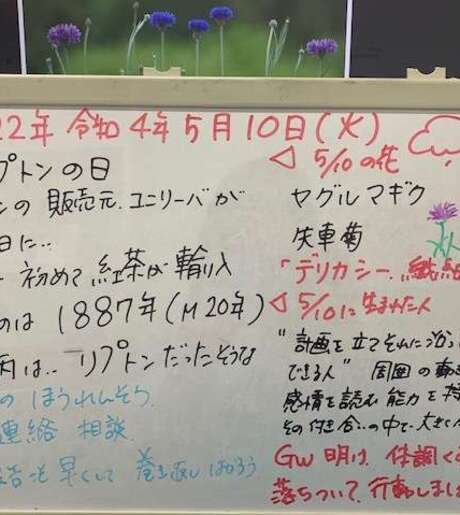 22年 令和4年5月10日(火)
プトンの日
ンの 販売元.ユニリーバが
日に..
初めて 紅茶が 輸入
のは 1887年(M20年)
は.. リプトンだったそうな
の ほうれんそう.
連絡 相談.
も 早くして 巻き返しはかろう
◁ 5/10の花
ヤグルマギク
矢車菊
「デリカシー.繊細
◁ 5/10に生まれた人
"計画を立てそれに沿っ
できる人" 周囲の
感情を読む能力を
その付き合いの中で.大きく
GW明け. 体調く
落ちついて.行動しまし